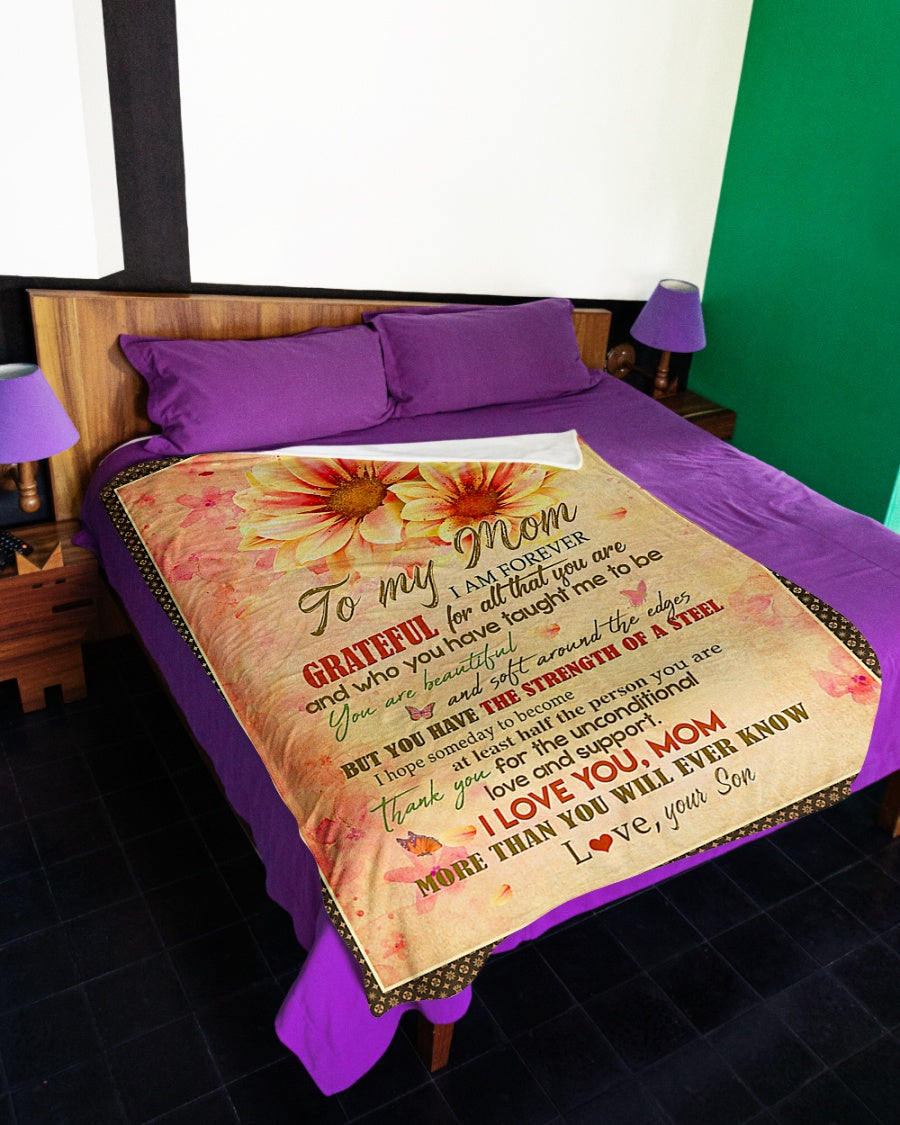 To my Mom
I AM FOREVER
GRATEFUL for all that you are
and who you have taught me to be
You are beautiful
and soft around the edges
BUT YOU HAVE THE STRENGTH OF A STEEL
I hope someday to become
at least half the person you are
Thank you for the unconditional
love and support.
I LOVE YOU, MOM
MORE THAN YOU WILL EVER KNOW
Love, your Son